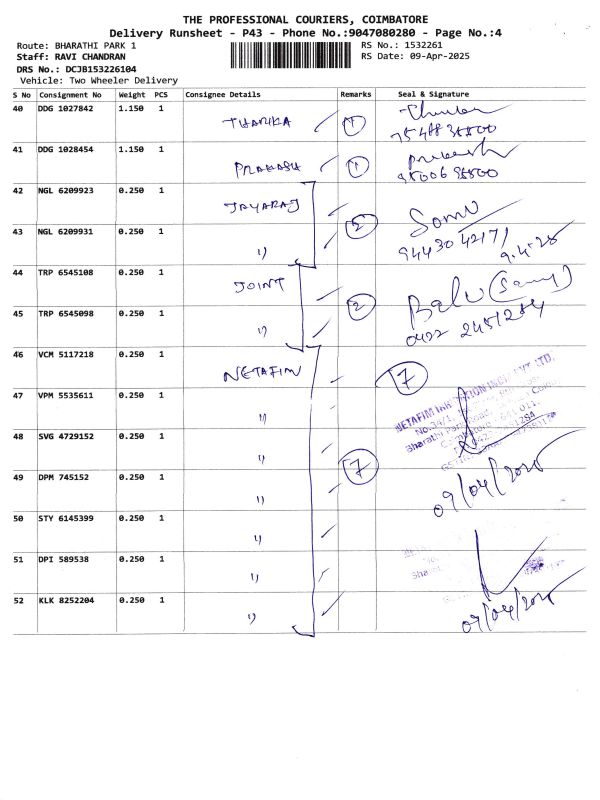 THE PROFESSIONAL COURIERS, COIMBATORE
Delivery Runsheet - P43 - Phone No.:9047080280 - Page No.:4
Route: BHARATHI PARK 1 RS No.: 1532261
Staff: RAVI CHANDRAN RS Date: 09-Apr-2025
DRS No.: DCJB153226104
Vehicle: Two Wheeler Delivery
S No Consignment No Weight PCS Consignee Details Remarks Seal & Signature
40 DDG 1027842 1.150 1 THARIKA 1
41 DDG 1028454 1.150 1 PRAKASH 1 prakash
42 NGL 6209923 0.250 1 JAYARAJ 2 Somu
43 NGL 6209931 0.250 1 " 9443042171 9.4.25
44 TRP 6545108 0.250 1 JOINT 2 Balu (Samy)
45 TRP 6545098 0.250 1 " 0422 2451254
46 VCM 5117218 0.250 1 NETAFIM 7
47 VPM 5535611 0.250 1 "
48 SVG 4729152 0.250 1 "
49 DPM 745152 0.250 1 " 7 09/04/2025
50 STY 6145399 0.250 1 "
51 DPI 589538 0.250 1 "
52 KLK 8252204 0.250 1 " 09/04/2025